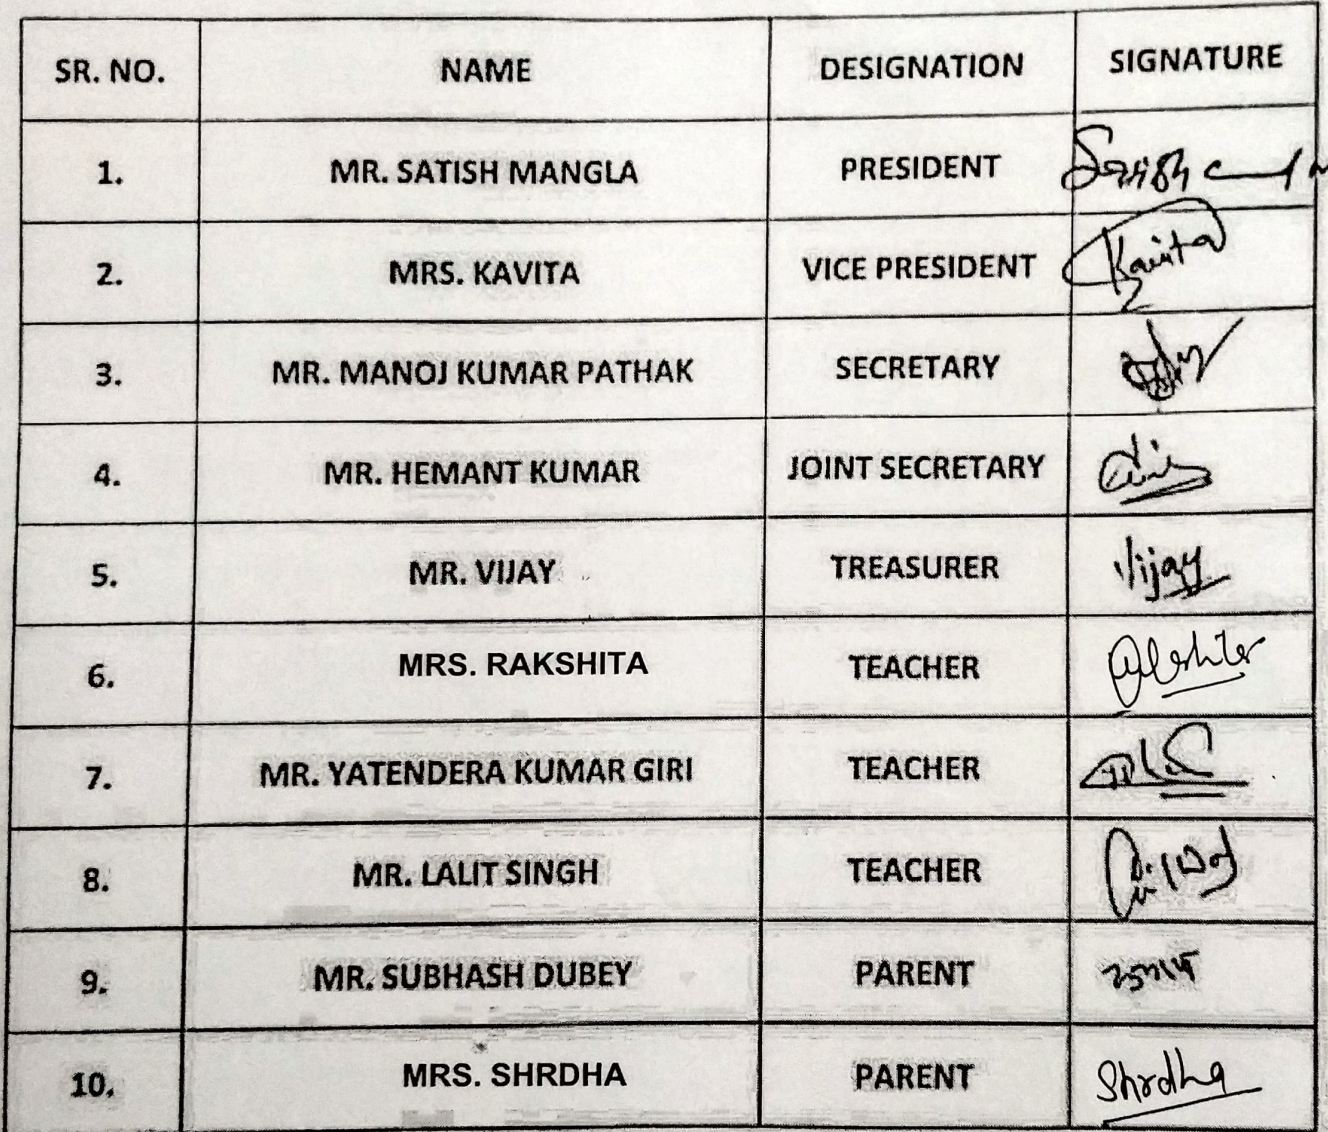 SR. NO. NAME DESIGNATION SIGNATURE
1. MR. SATISH MANGLA PRESIDENT
2. MRS. KAVITA VICE PRESIDENT Kavita
3. MR. MANOJ KUMAR PATHAK SECRETARY
4. MR. HEMANT KUMAR JOINT SECRETARY
5. MR. VIJAY TREASURER Vijay
6. MRS. RAKSHITA TEACHER
7. MR. YATENDERA KUMAR GIRI TEACHER
8. MR. LALIT SINGH TEACHER
9. MR. SUBHASH DUBEY PARENT
10. MRS. SHRDHA PARENT Shrdha